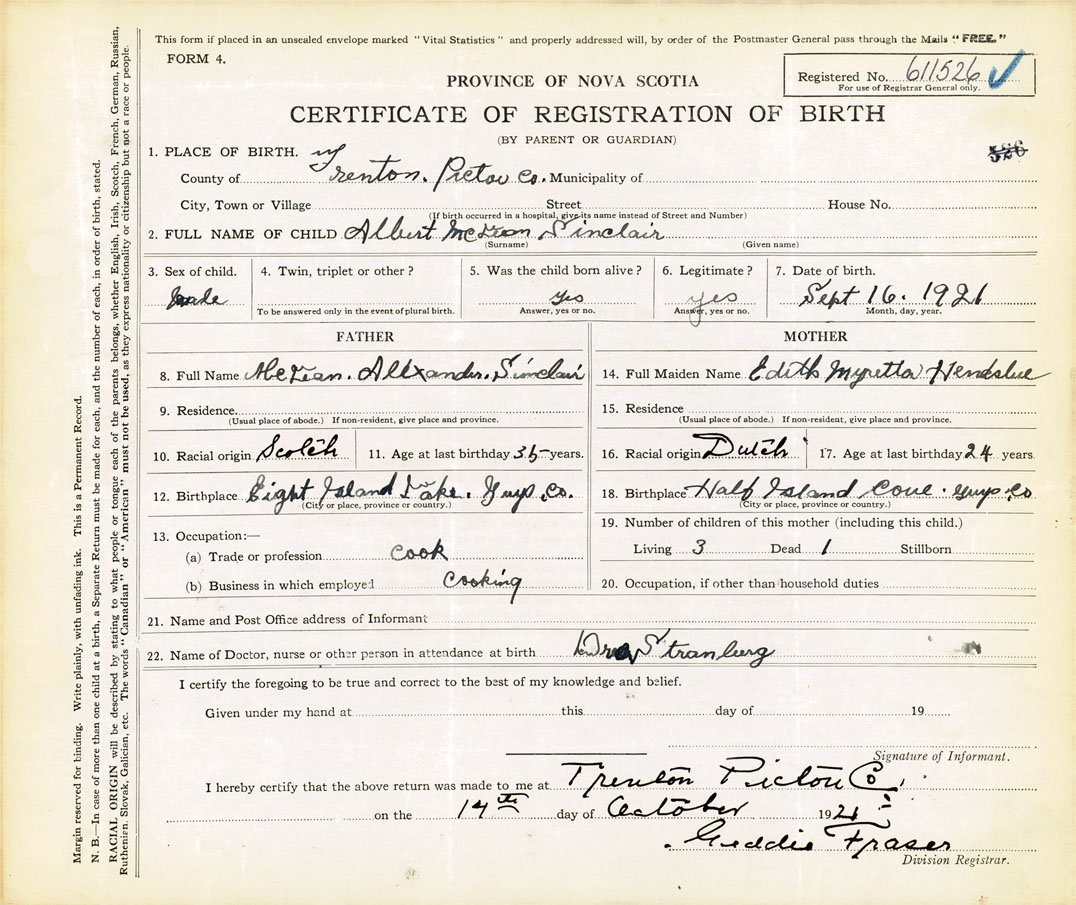 This form if placed in an unsealed envelope marked "Vital Statistics" and properly addressed will, by order of the Postmaster General pass through the Mails "FREE."
FORM 4.
Registered No. 611526
For use of Registrar General only.
PROVINCE OF NOVA SCOTIA
CERTIFICATE OF REGISTRATION OF BIRTH
(BY PARENT OR GUARDIAN)
326
1. PLACE OF BIRTH.
County of Trenton. Pictou Co. Municipality of
City, Town or Village Street House No.
(If birth occurred in a hospital, give its name instead of Street and Number)
2. FULL NAME OF CHILD Albert McLean Sinclair
(Surname) (Given name)
3. Sex of child. 4. Twin, triplet or other? 5. Was the child born alive? 6. Legitimate? 7. Date of birth.
male yes yes Sept 16. 1921
To be answered only in the event of plural birth. Answer, yes or no. Answer, yes or no. Month, day, year.
FATHER MOTHER
8. Full Name McLean. Allxander. Sinclair 14. Full Maiden Name Edith Myretta
9. Residence 15. Residence
(Usual place of abode.) If non-resident, give place and province. (Usual place of abode.) If non-resident, give place and province.
10. Racial origin Scotch 11. Age at last birthday 35 years. 16. Racial origin Dutch 17. Age at last birthday 24 years
12. Birthplace Eight Island Lake. Guys. Co. 18. Birthplace Half Island Cove. Guys. Co
(City or place, province or country.) (City or place, province or country.)
19. Number of children of this mother (including this child.)
13. Occupation:—
(a) Trade or profession cook Living 3 Dead 1 Stillborn
(b) Business in which employed cooking 20. Occupation, if other than household duties
21. Name and Post Office address of Informant
22. Name of Doctor, nurse or other person in attendance at birth Stranberg
I certify the foregoing to be true and correct to the best of my knowledge and belief.
Given under my hand at this day of 19
Signature of Informant.
I hereby certify that the above return was made to me at Trenton Pictou Co.
on the 14th day of October 1921
Geddie Fraser
Division Registrar.
Margin reserved for binding. Write plainly, with unfading ink. This is a Permanent Record.
N. B.—In case of more than one child at a birth, a Separate Return must be made for each, and the number of each, in order of birth, stated.
RACIAL ORIGIN will be described by stating to what people or tongue each of the parents belongs, whether English, Irish, Scotch, French, German, Russian,
Ruthenien, Slovak, Galician, etc. The words "Canadian" or "American" must not be used, as they express nationality or citizenship but not a race or people.